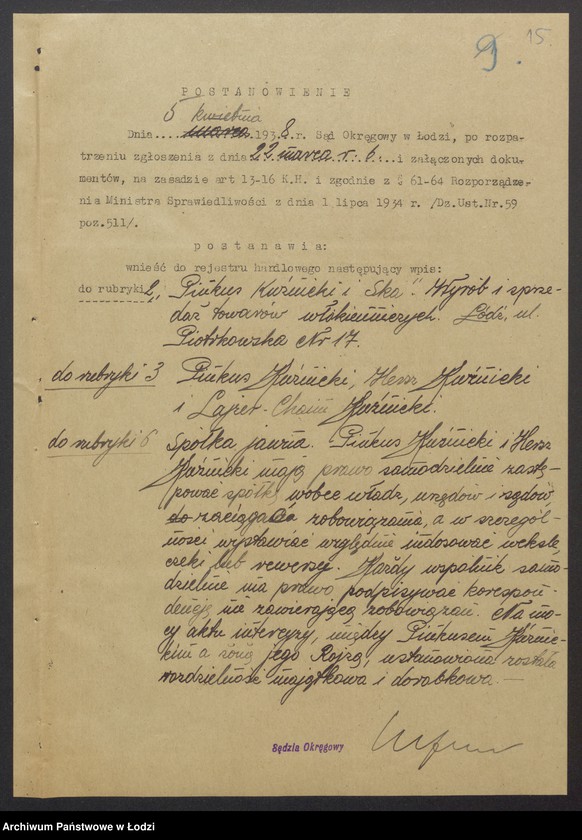 9. 15.
POSTANOWIENIE
5 kwietnia
Dnia....marca.1938 r. Sąd Okręgowy w Łodzi, po rozpa-
trzeniu zgłoszenia z dnia 22 marca r. b. i załączonych doku-
mentów, na zasadzie art 13-16 K.H. i zgodnie z § 61-64 Rozporządze-
nia Ministra Sprawiedliwości z dnia 1 lipca 1934 r. /Dz.Ust.Nr.59
poz.511/.
postanawia:
wnieść do rejestru handlowego następujący wpis:
do rubryki 2, "Pinkus Kuźnicki i Ska". Wyrób i sprze-
daż towarów włókienniczych. Łódź, ul.
Piotrkowska Nr 17.
do rubryki 3 Pinkus Kuźnicki, Hersz Kuźnicki
i Lajzer-Chaim Kuźnicki.
do rubryki 6 Spółka jawna. Pinkus Kuźnicki i Hersz
Kuźnicki mają prawo samodzielnie zastę-
pować spółkę wobec władz, urzędów i sądów
do zaciągać zobowiązania, a w szczegól-
ności wystawiać względnie indosować weksle,
czeki lub rewersy. Każdy wspólnik samo-
dzielnie ma prawo podpisywać korespon-
dencję nie zawierającą zobowiązań. Na mo-
cy aktu intercyzy, między Pinkusem Kuźnic-
kim a żoną jego Rojzą, ustanowiona została
rozdzielność majątkowa i dorobkowa. —
Sędzia Okręgowy
Archiwum Państwowe w Łodzi